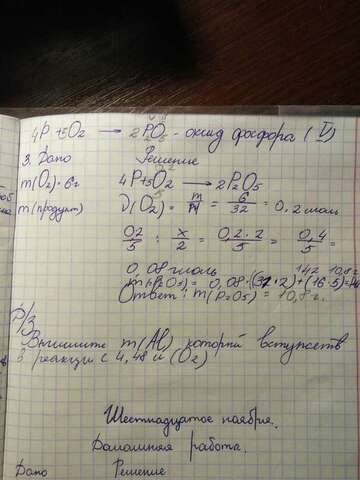 4P + 5O₂ → 2P₂O₅ - оксид фосфора (V)
3. Дано Решение
m(O₂) = 6г 4P+5O₂ → 2P₂O₅
m(продукт) ν(O₂) = m/M = 6/32 = 0,2 моль
0,2/5 : x/2 = 0,2·2/5 = 0,4/5 =
0,08 моль 142 10,8г
m(P₂O₅) = 0,08·(31·2)+(16·5)=
Ответ: m(P₂O₅) = 10,8 г.
Р/з
Вычислите m(Al) которой вступает
в реакции с 4,48 л (O₂)
Шестнадцатое ноября.
Домашняя работа.
Дано Решение